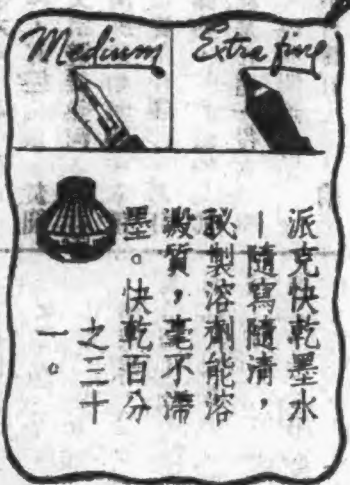 Medium
Extra fine
派克快乾墨水
—隨寫隨清，
祕製溶劑能溶
澱質，毫不滯
墨。快乾百分
之三十
一。